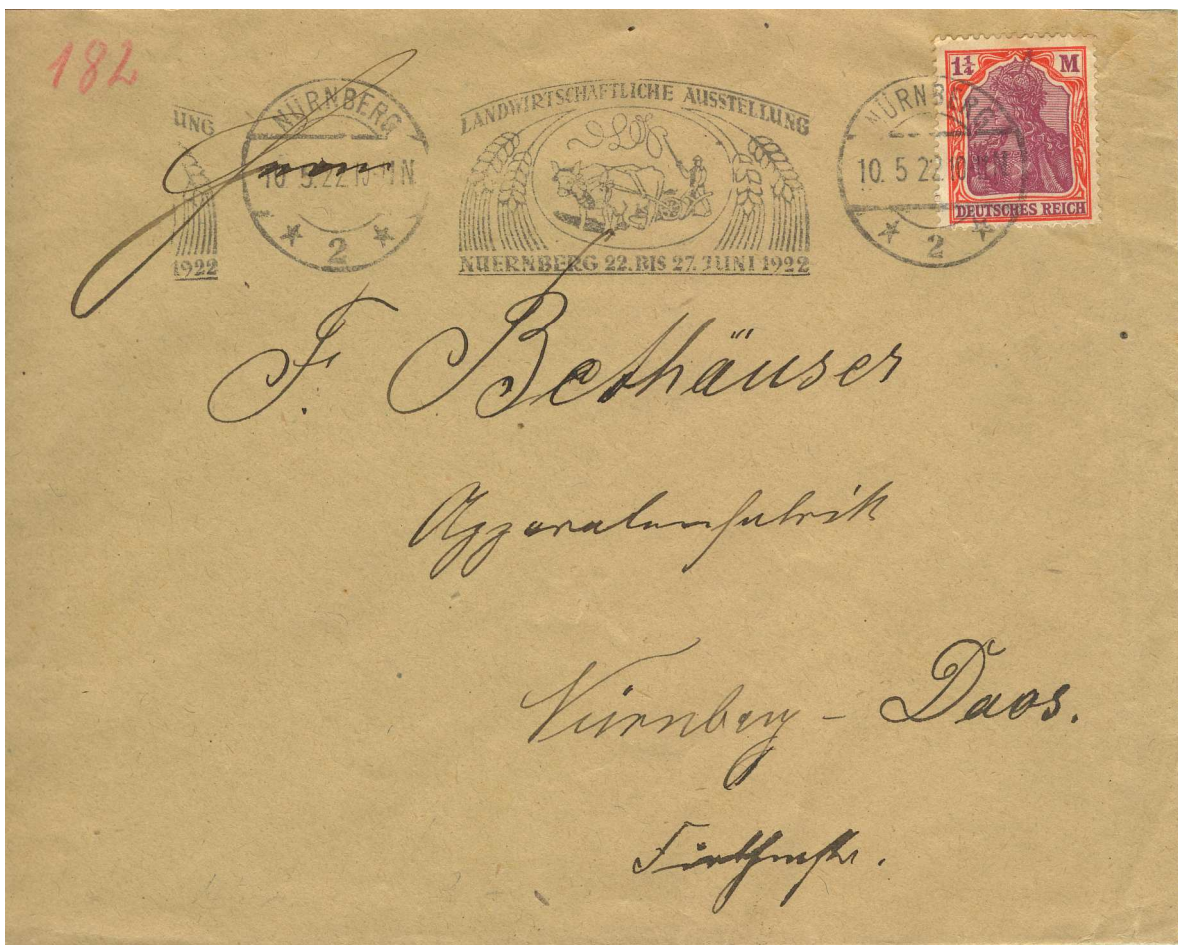 182
UNG
1922
NÜRNBERG
10.5.22.10-11N
* 2 *
LANDWIRTSCHAFTLICHE AUSSTELLUNG
DLG
NUERNBERG 22. BIS 27. JUNI 1922
NÜRNBERG
10.5.22.10-11N
* 2 *
1¼ M
DEUTSCHES REICH
F. Bethäuser
Apparatenfabrik
Nürnberg - Doos.
Fürtherstr.